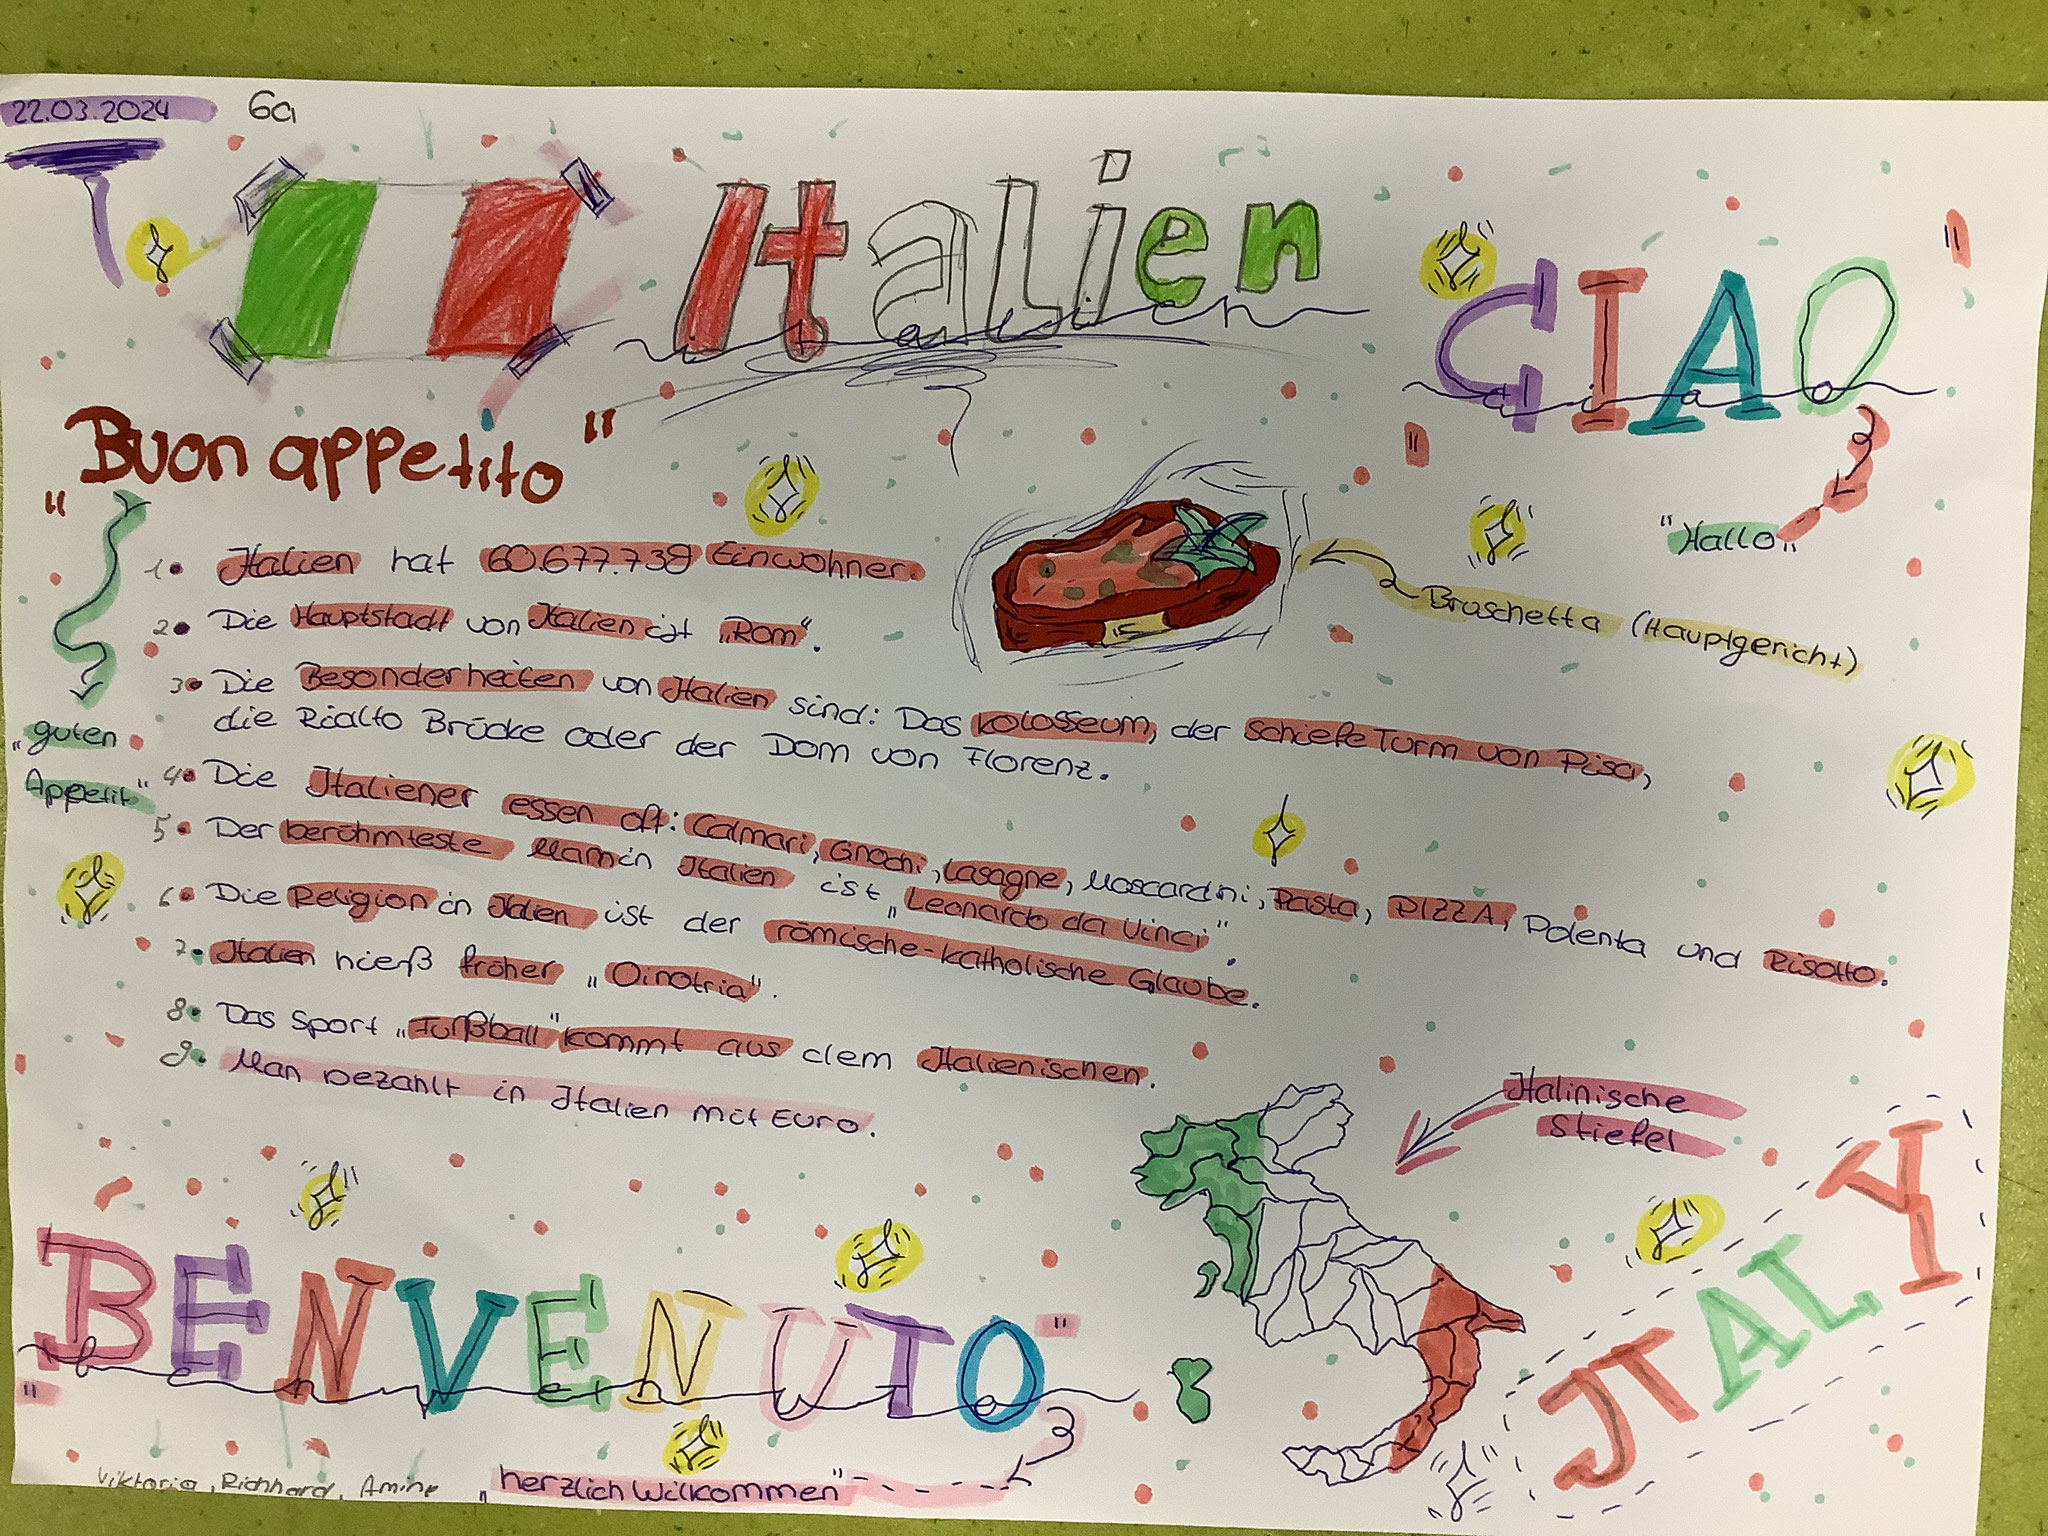 22.03.2024 6a
Italien
italien
"CIAO"
ciao
"Hallo"
"Buon appetito"
"guten
Appetit"
Bruschetta (Hauptgericht)
1. Italien hat 60.677.739 Einwohner.
2. Die Hauptstadt von Italien ist „Rom".
3. Die Besonderheiten von Italien sind: Das Kolosseum, der schiefe Turm von Pisa,
die Rialto Brücke oder der Dom von Florenz.
4. Die Italiener essen oft: Calmari, Gnochi, Lasagne, Moscardini, Pasta, PIZZA, Polenta und Risotto.
5. Der berühmteste Mann in Italien ist „Leonardo da Vinci".
6. Die Religion in Italien ist der römische-katholische Glaube.
7. Italien hieß früher „Oinotria".
8. Das Sport „Fußball" kommt aus dem Italienischen.
9. Man bezahlt in Italien mit Euro.
Italinische
Stiefel
ITALY
"BENVENUTO"
benvenuto
„herzlich Wilkommen"
Viktoria, Richhard, Amine